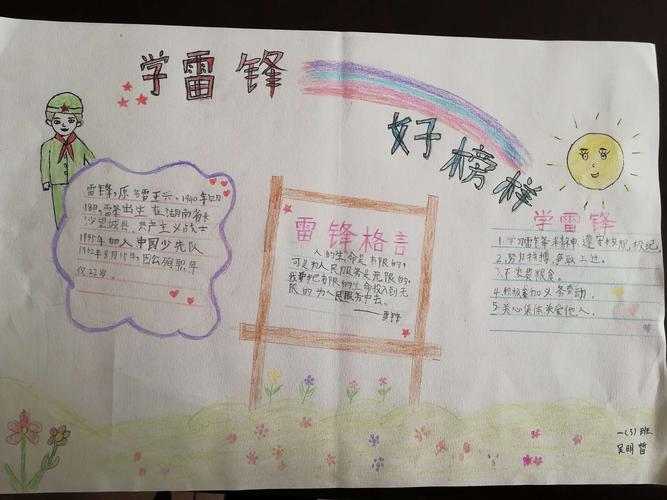 学雷锋
好榜样
雷锋,原名雷正兴,1940年12月
18日,雷锋出生在湖南省长
沙望城县,共产主义战士
1945年加入中国少先队
1962年8月15日,因公殉职年
仅22岁。
雷锋格言
人的生命是有限的,
可是为人民服务是无限的,
我要把有限的生命投入到无
限的为人民服务中去。
——雷锋
学雷锋
1.学习雷锋精神 遵守校规,校纪
2.努力拼搏,争取上过。
3.不浪费粮食。
4.积极参加义务劳动,
5.关心集体关爱他人。
一(3)班
吴明哲